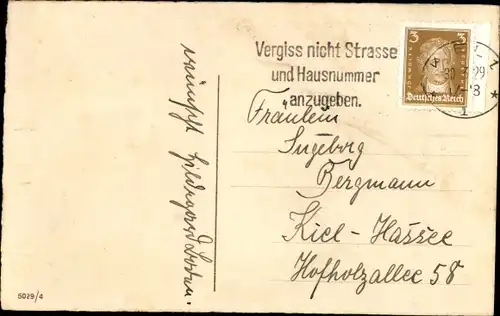 wünscht Hildegard Boden.
Vergiss nicht Strasse
und Hausnummer
anzugeben.
3 3
Deutsches Reich
29
8
1
Fräulein
Ingeborg
Bergmann
Kiel-Hassee
Hofholzallee 58
5029/4